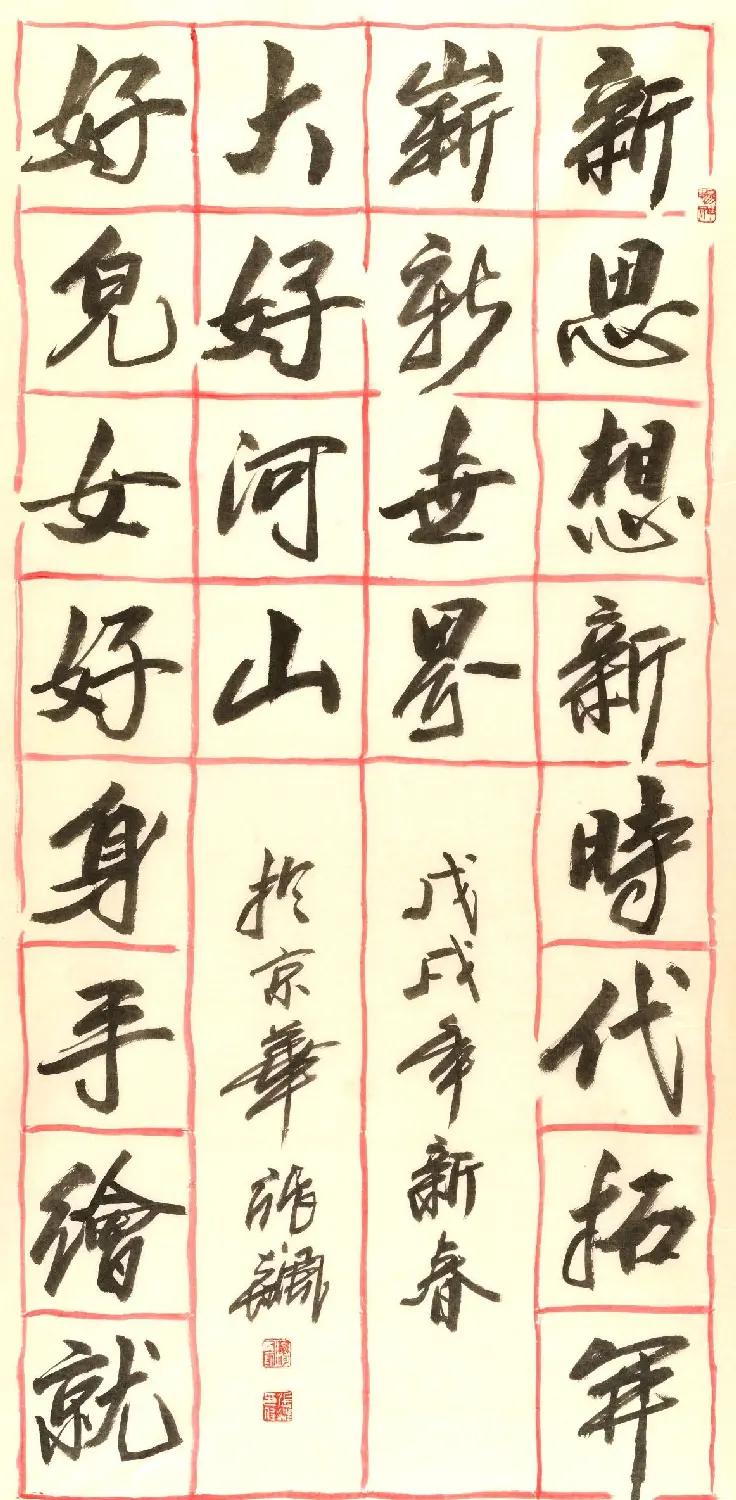 新思想新時代拓開
嶄新世界
戊戌年新春
好兒女好身手繪就
大好河山
於京華張飆